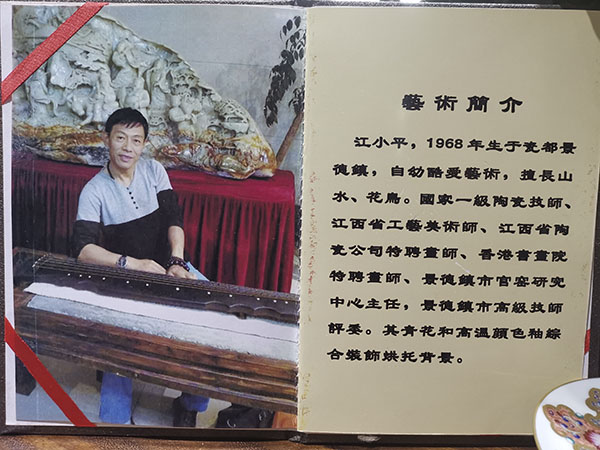 藝術簡介
江小平，1968年生于瓷都景
德鎮，自幼酷爱藝術，擅長山
水、花鳥。國家一級陶瓷技師、
江西省工藝美術師、江西省陶
瓷公司特聘畫師、香港書畫院
特聘畫師、景德鎮市官窑研究
中心主任，景德鎮市高級技師
評委。其青花和高温顔色釉綜
合裝飾烘托背景。